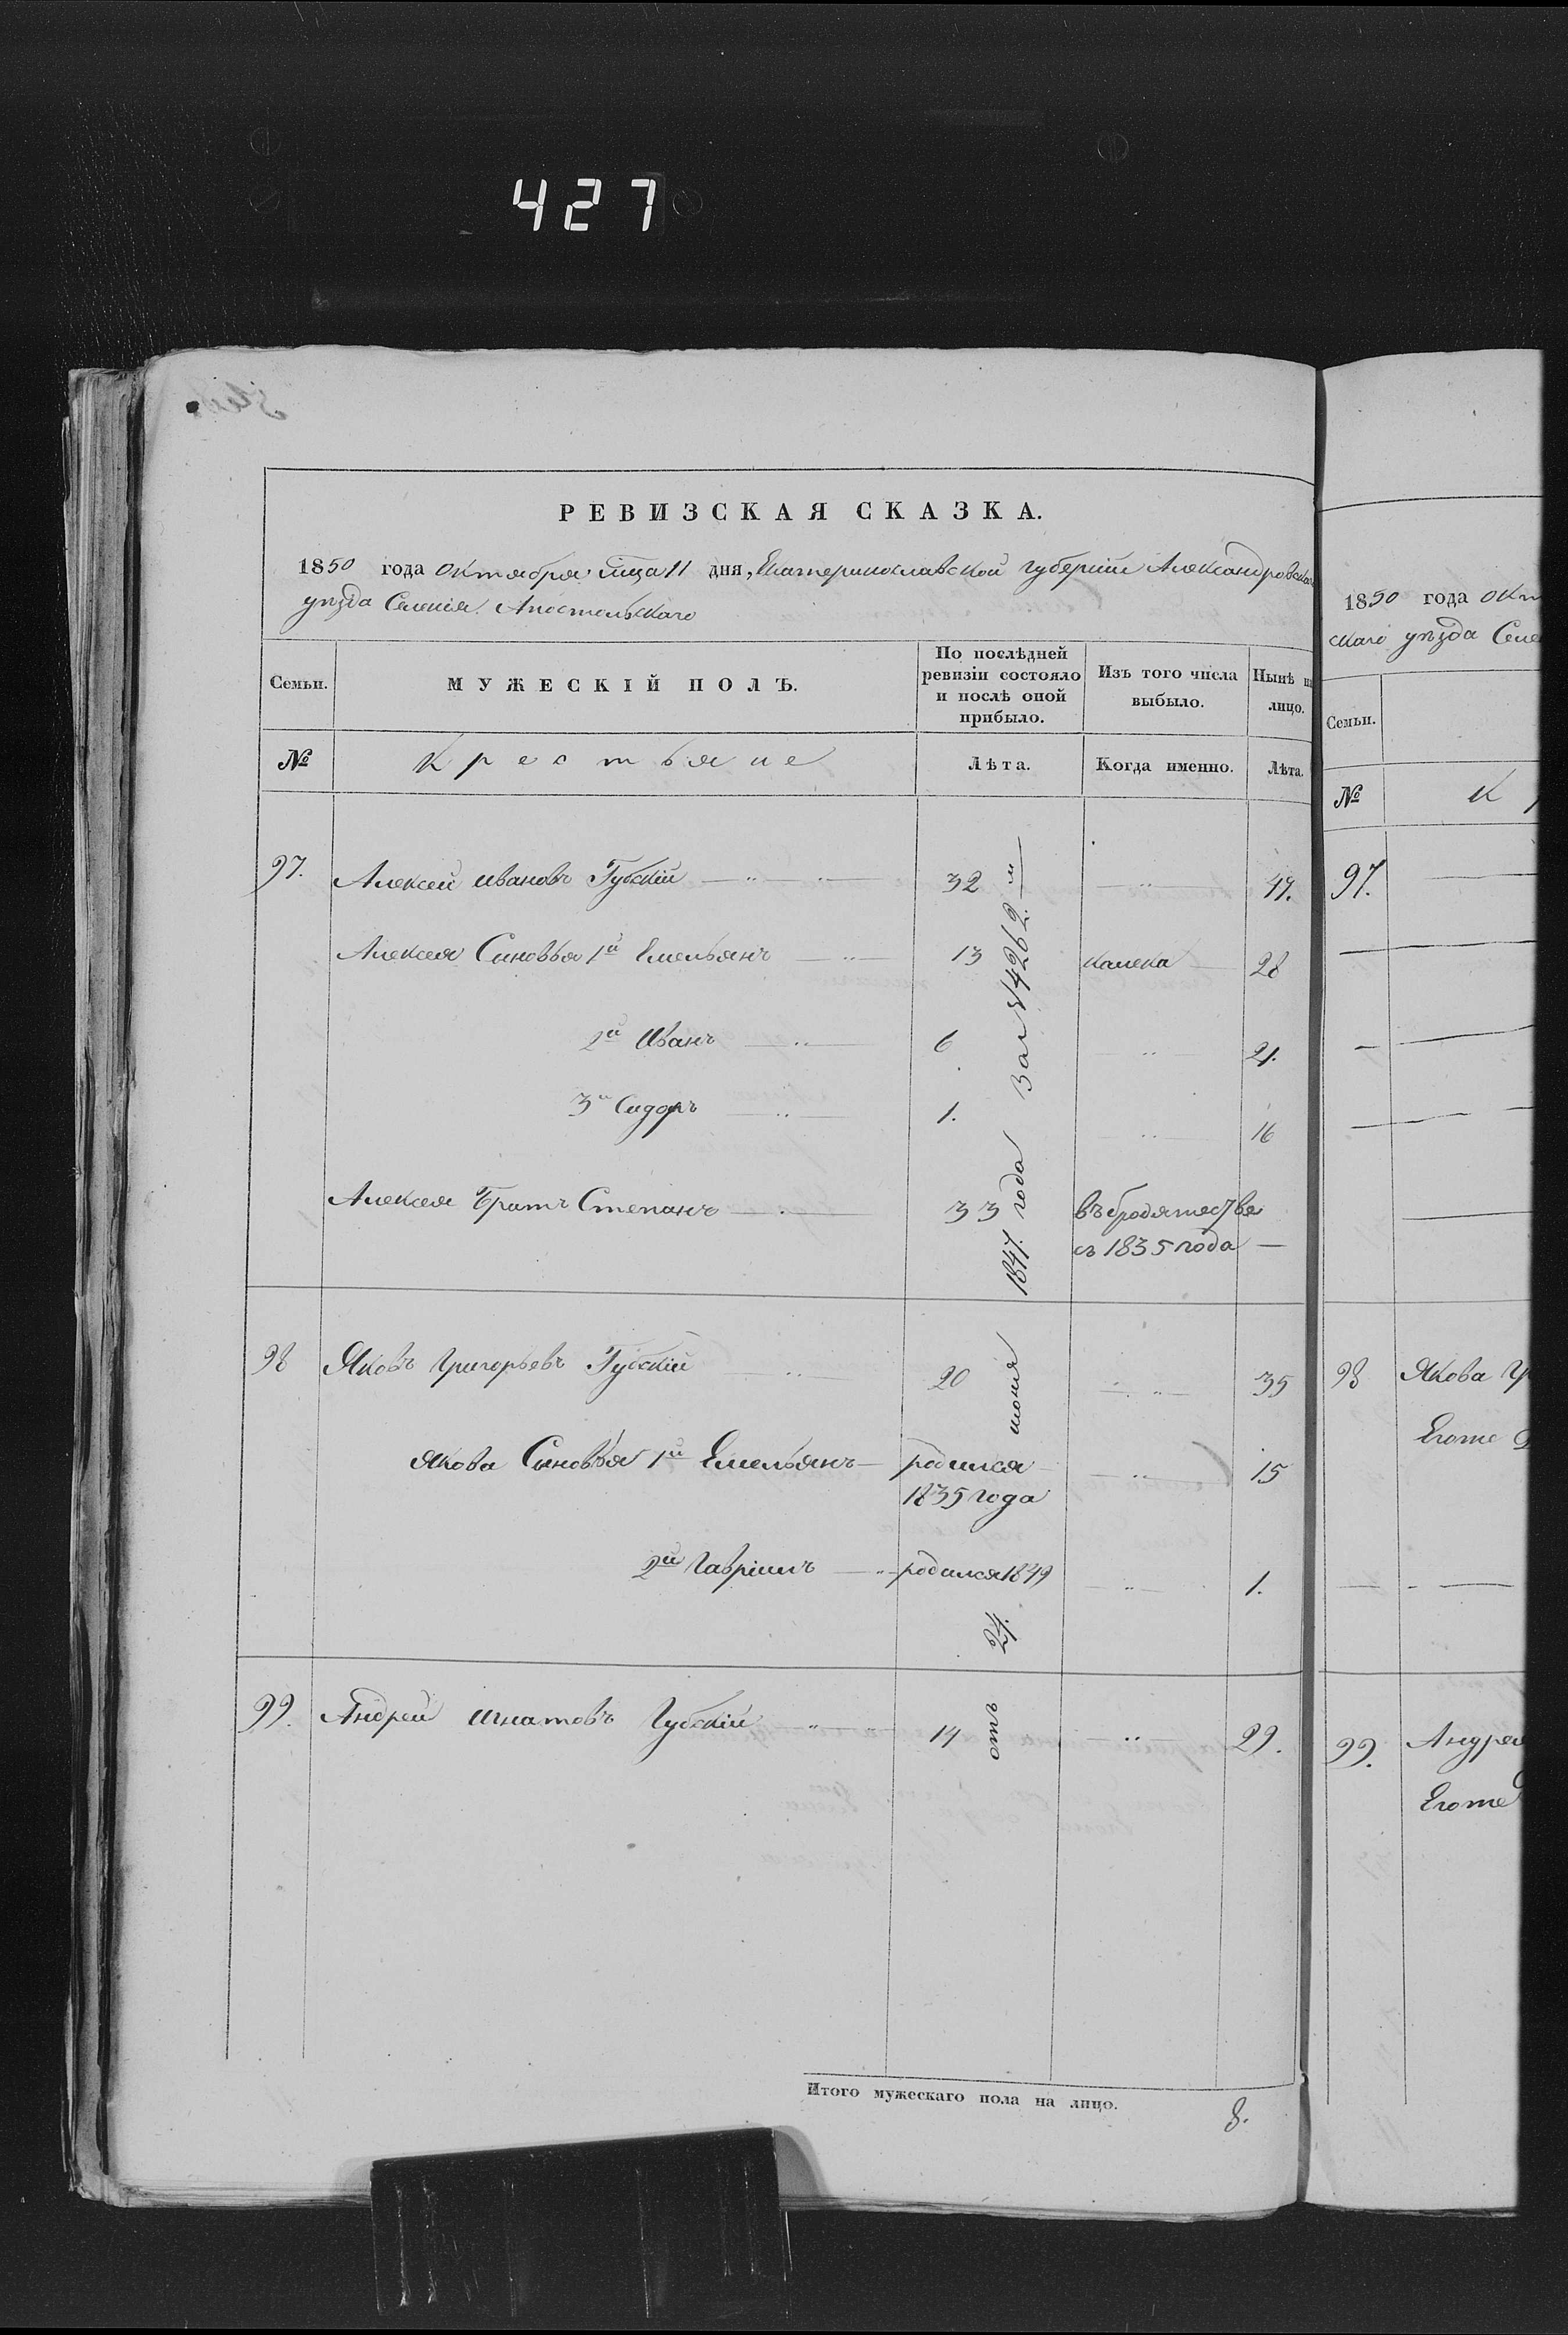 427
РЕВИЗСКАЯ СКАЗКА.
1850 года октября мца 11 дня, Екатеринославской губерніи Александровскаго
уѣзда Селенія Апостольскаго
Семьи.
МУЖЕСКІЙ ПОЛЪ.
По послѣдней
ревизіи состояло
и послѣ оной
прибыло.
Изъ того числа
выбыло.
Нынѣ на
лицо.
№ Крестьяне Лѣта. Когда именно. Лѣта.
97. Алексей Ивановъ Губскій 32 47.
Алексея Сыновья 1й Емельянъ 13 калека 28
2й Иванъ 6 21.
3й Сидоръ 1. 16
Алексея Братъ Степанъ 33 въ бродяжестве
съ 1835 года —
98 Яковъ Григорьевъ Губскій 20 35
Якова Сыновья 1й Емельянъ родился 15
1835 года
2й Гавріилъ родился 1849 1.
99. Андрей Игнатовъ Губскій 14 29.
отъ 24. июня 1847. года за № 14262. м
Итого мужескаго пола на лицо. 8.
1850 года окт
скаго уѣзда Селе
Семьи.
№ К р
97.
98 Якова Гр
Егоже
99. Андрея
Егоже